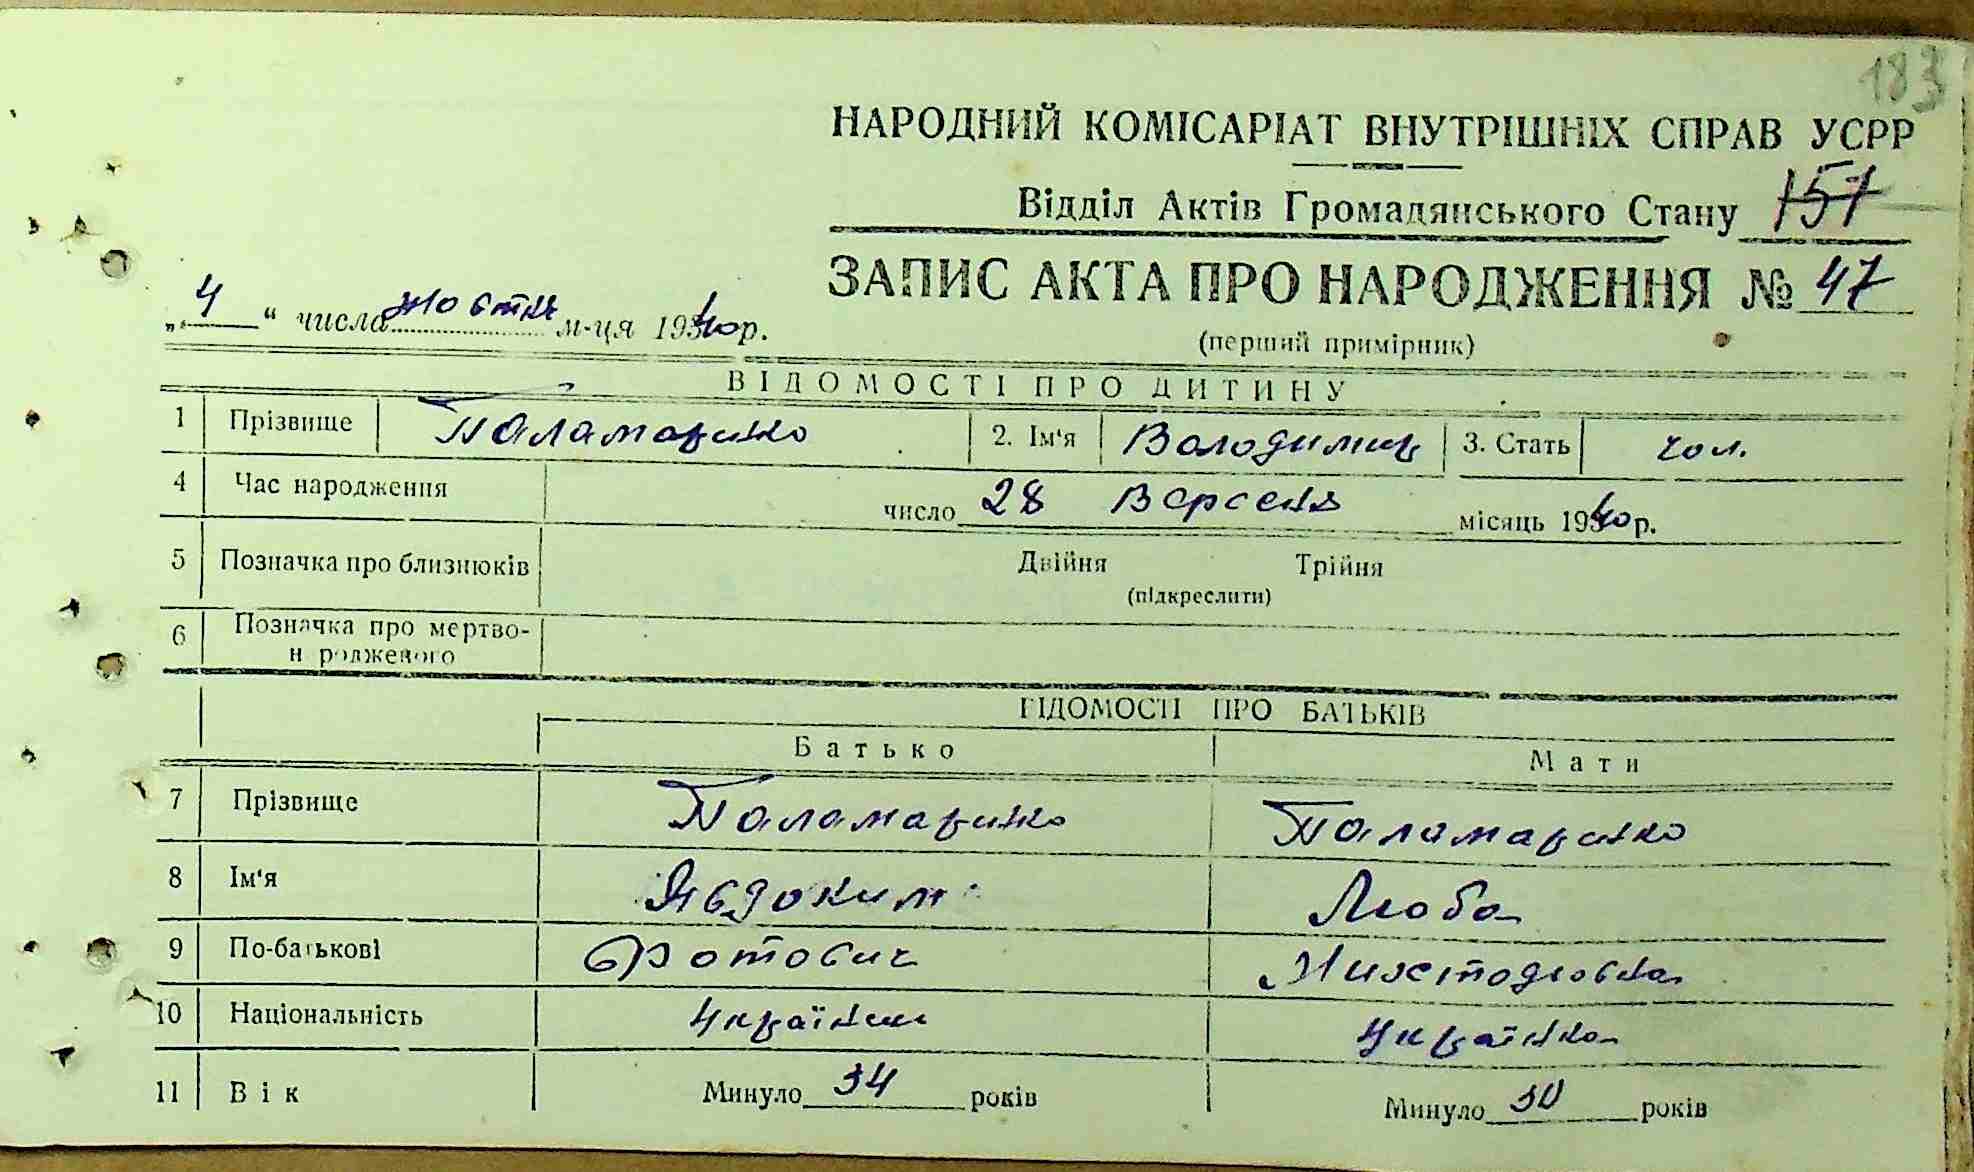 183
НАРОДНИЙ КОМІСАРІАТ ВНУТРІШНІХ СПРАВ УСРР
Відділ Актів Громадянського Стану 157
ЗАПИС АКТА ПРО НАРОДЖЕННЯ № 47
„4“ числа жовтня м-ця 1940р.
(перший примірник)
ВІДОМОСТІ ПРО ДИТИНУ
1 Прізвище Паламаренко 2. Ім'я Володимир 3. Стать чол.
4 Час народження число 28 Вересня місяць 1940р.
5 Позначка про близнюків Двійня Трійня
(підкреслити)
6 Позначка про мертво-
н родженого
ВІДОМОСТІ ПРО БАТЬКІВ
Батько Мати
7 Прізвище Паламаренко Паламаренко
8 Ім'я Явдоким Люба
9 По-батькові Фотович
10 Національність Українець Українка
11 Вік Минуло 34 років Минуло 30 років